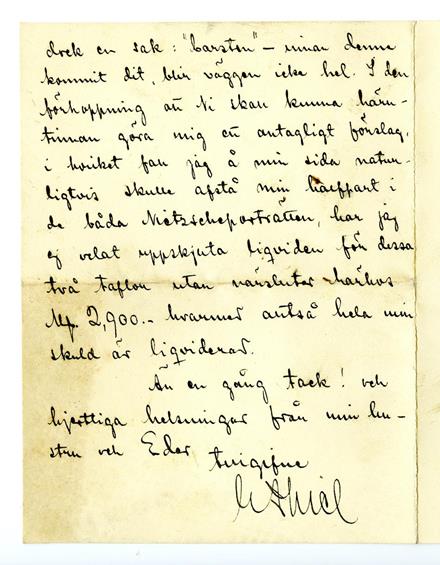 dock en sak: "barsten" – innan denne
kommit dit, blir väggen icke hel. I den
förhoppning att Ni skall kunna häru-
tinnan göra mig ett antagligt förslag,
i hvilket fall jag å min sida natur-
ligtvis skulle afstå min hälftpart i
de båda Nietzscheporträtten, har jag
ej velat uppskjuta liqviden för dessa
två taflor utan närsluter härhos
Mk. 2,900.– hvarmed alltså hela min
skuld är liqviderad.
Än en gång tack! och
hjertliga helsningar från min hu-
stru och Eder
tillgifne